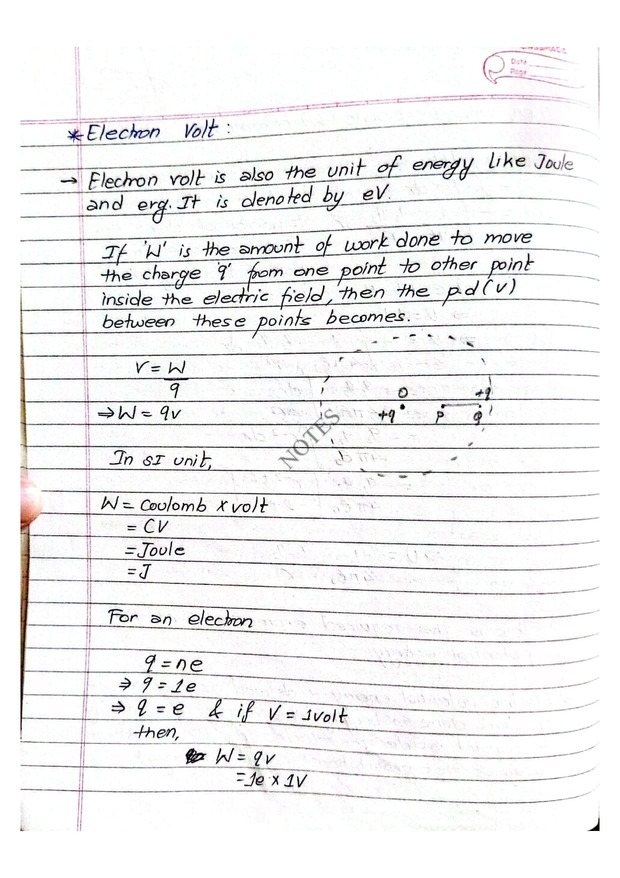 Date
Page
* Electron Volt :
→ Electron volt is also the unit of energy like Joule
and erg. It is denoted by eV.
If 'W' is the amount of work done to move
the charge 'q' from one point to other point
inside the electric field, then the p.d (V)
between these points becomes.
V = W
q
⇒ W = qv
O +q
+q P Q
NOTES
In SI unit,
W = Coulomb x volt
= CV
= Joule
= J
For an electron
q = ne
⇒ q = 1e
⇒ q = e & if V = 1volt
then,
W = qv
= 1e x 1V